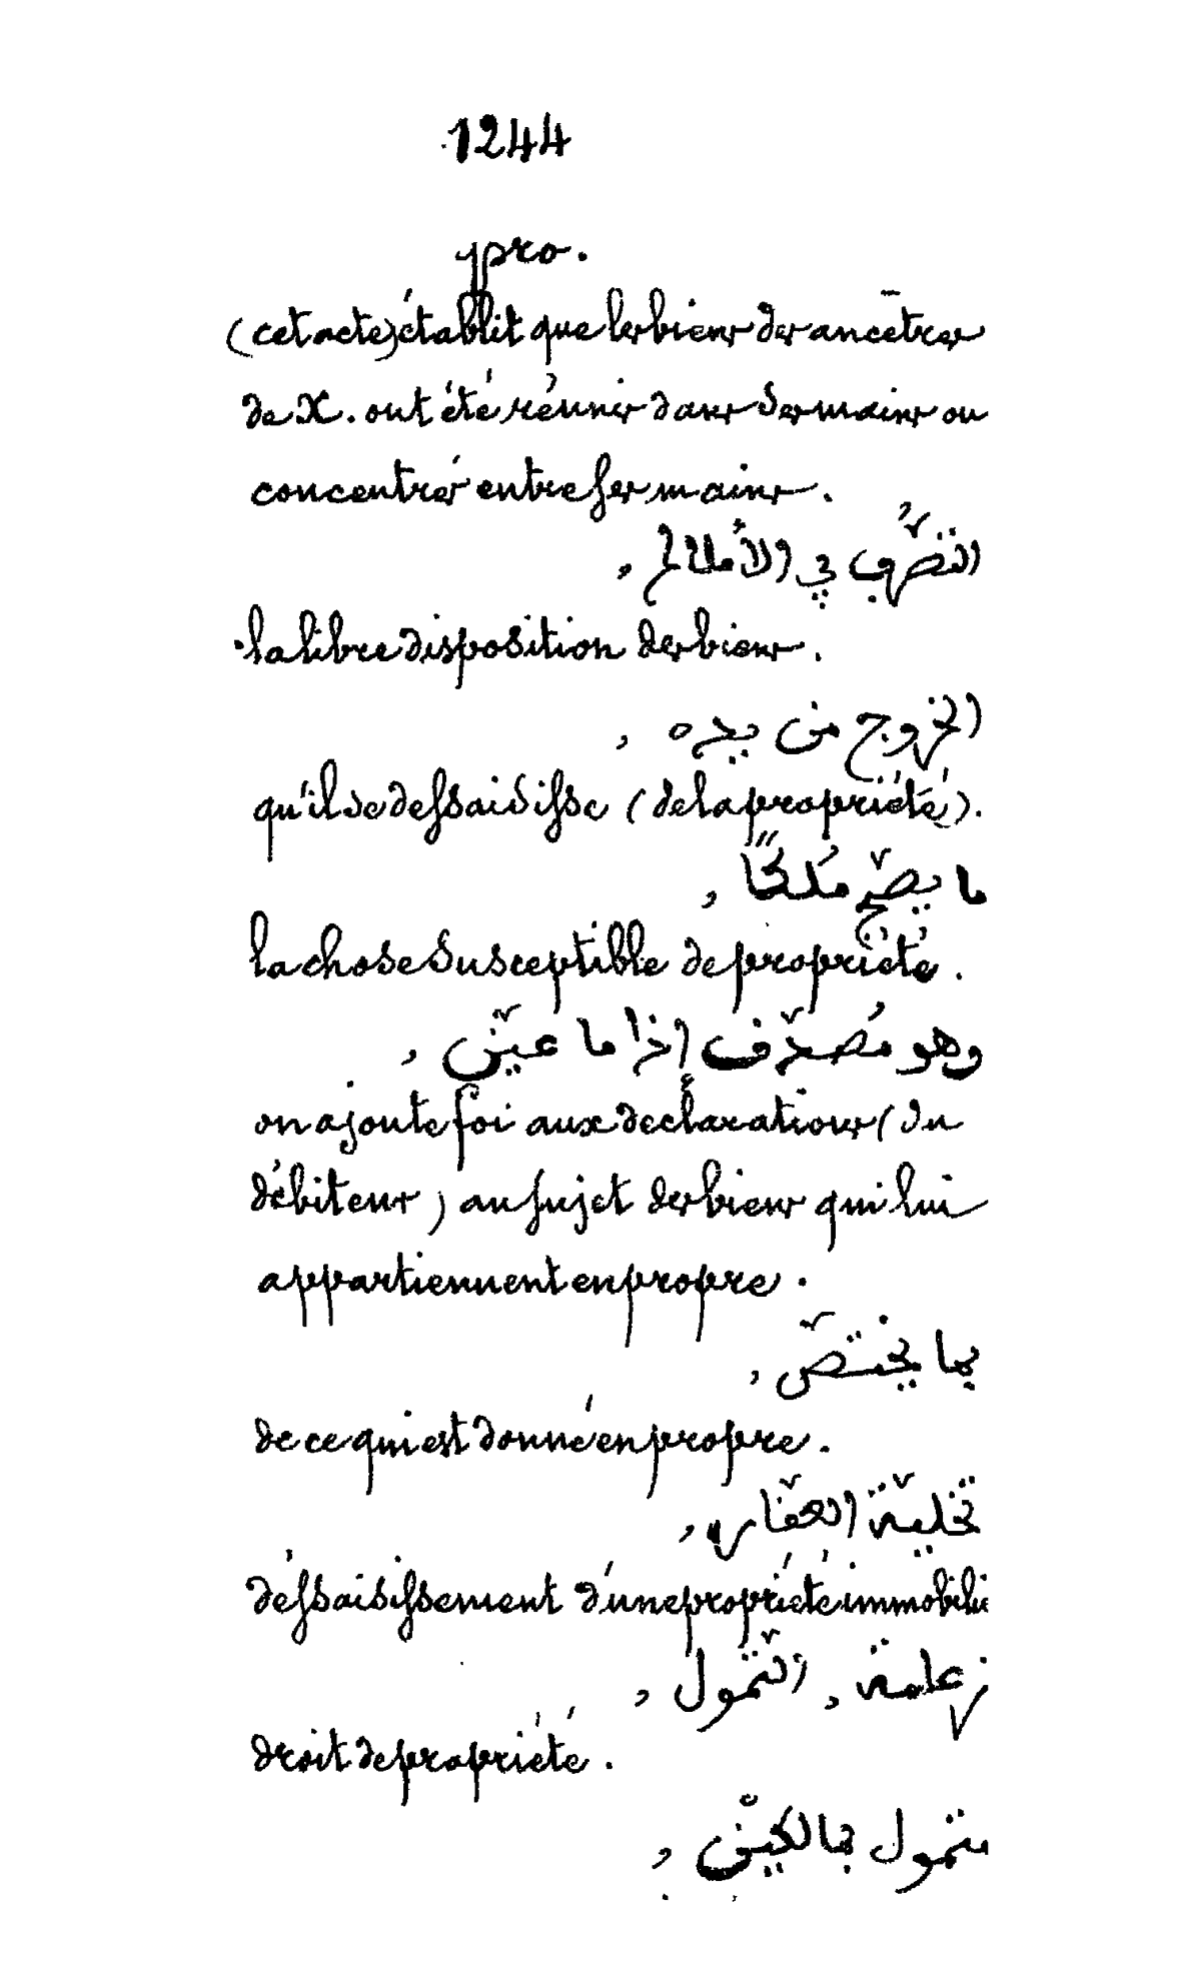 1244
pro.
(cet acte) établit que les biens des ancêtres
de X. ont été réunis dans des mains ou
concentrés entre ses mains.
التصرُّف في الأملاك ,
la libre disposition des biens.
الخروج من يده ,
qu'il se dessaisisse (de la propriété).
ما يصحّ مُلكًا ,
la chose susceptible de propriété.
وهو مُصدّق إذا ما عيّن ,
on ajoute foi aux déclarations (du
débiteur) au sujet des biens qui lui
appartiennent en propre.
بما يختصّ ,
de ce qui est donné en propre.
تخليّة العقّار ,
déssaisissement d'une propriété immobiliè
زعامة , التّمول ,
droit de propriété.
متمول بمالكين ,